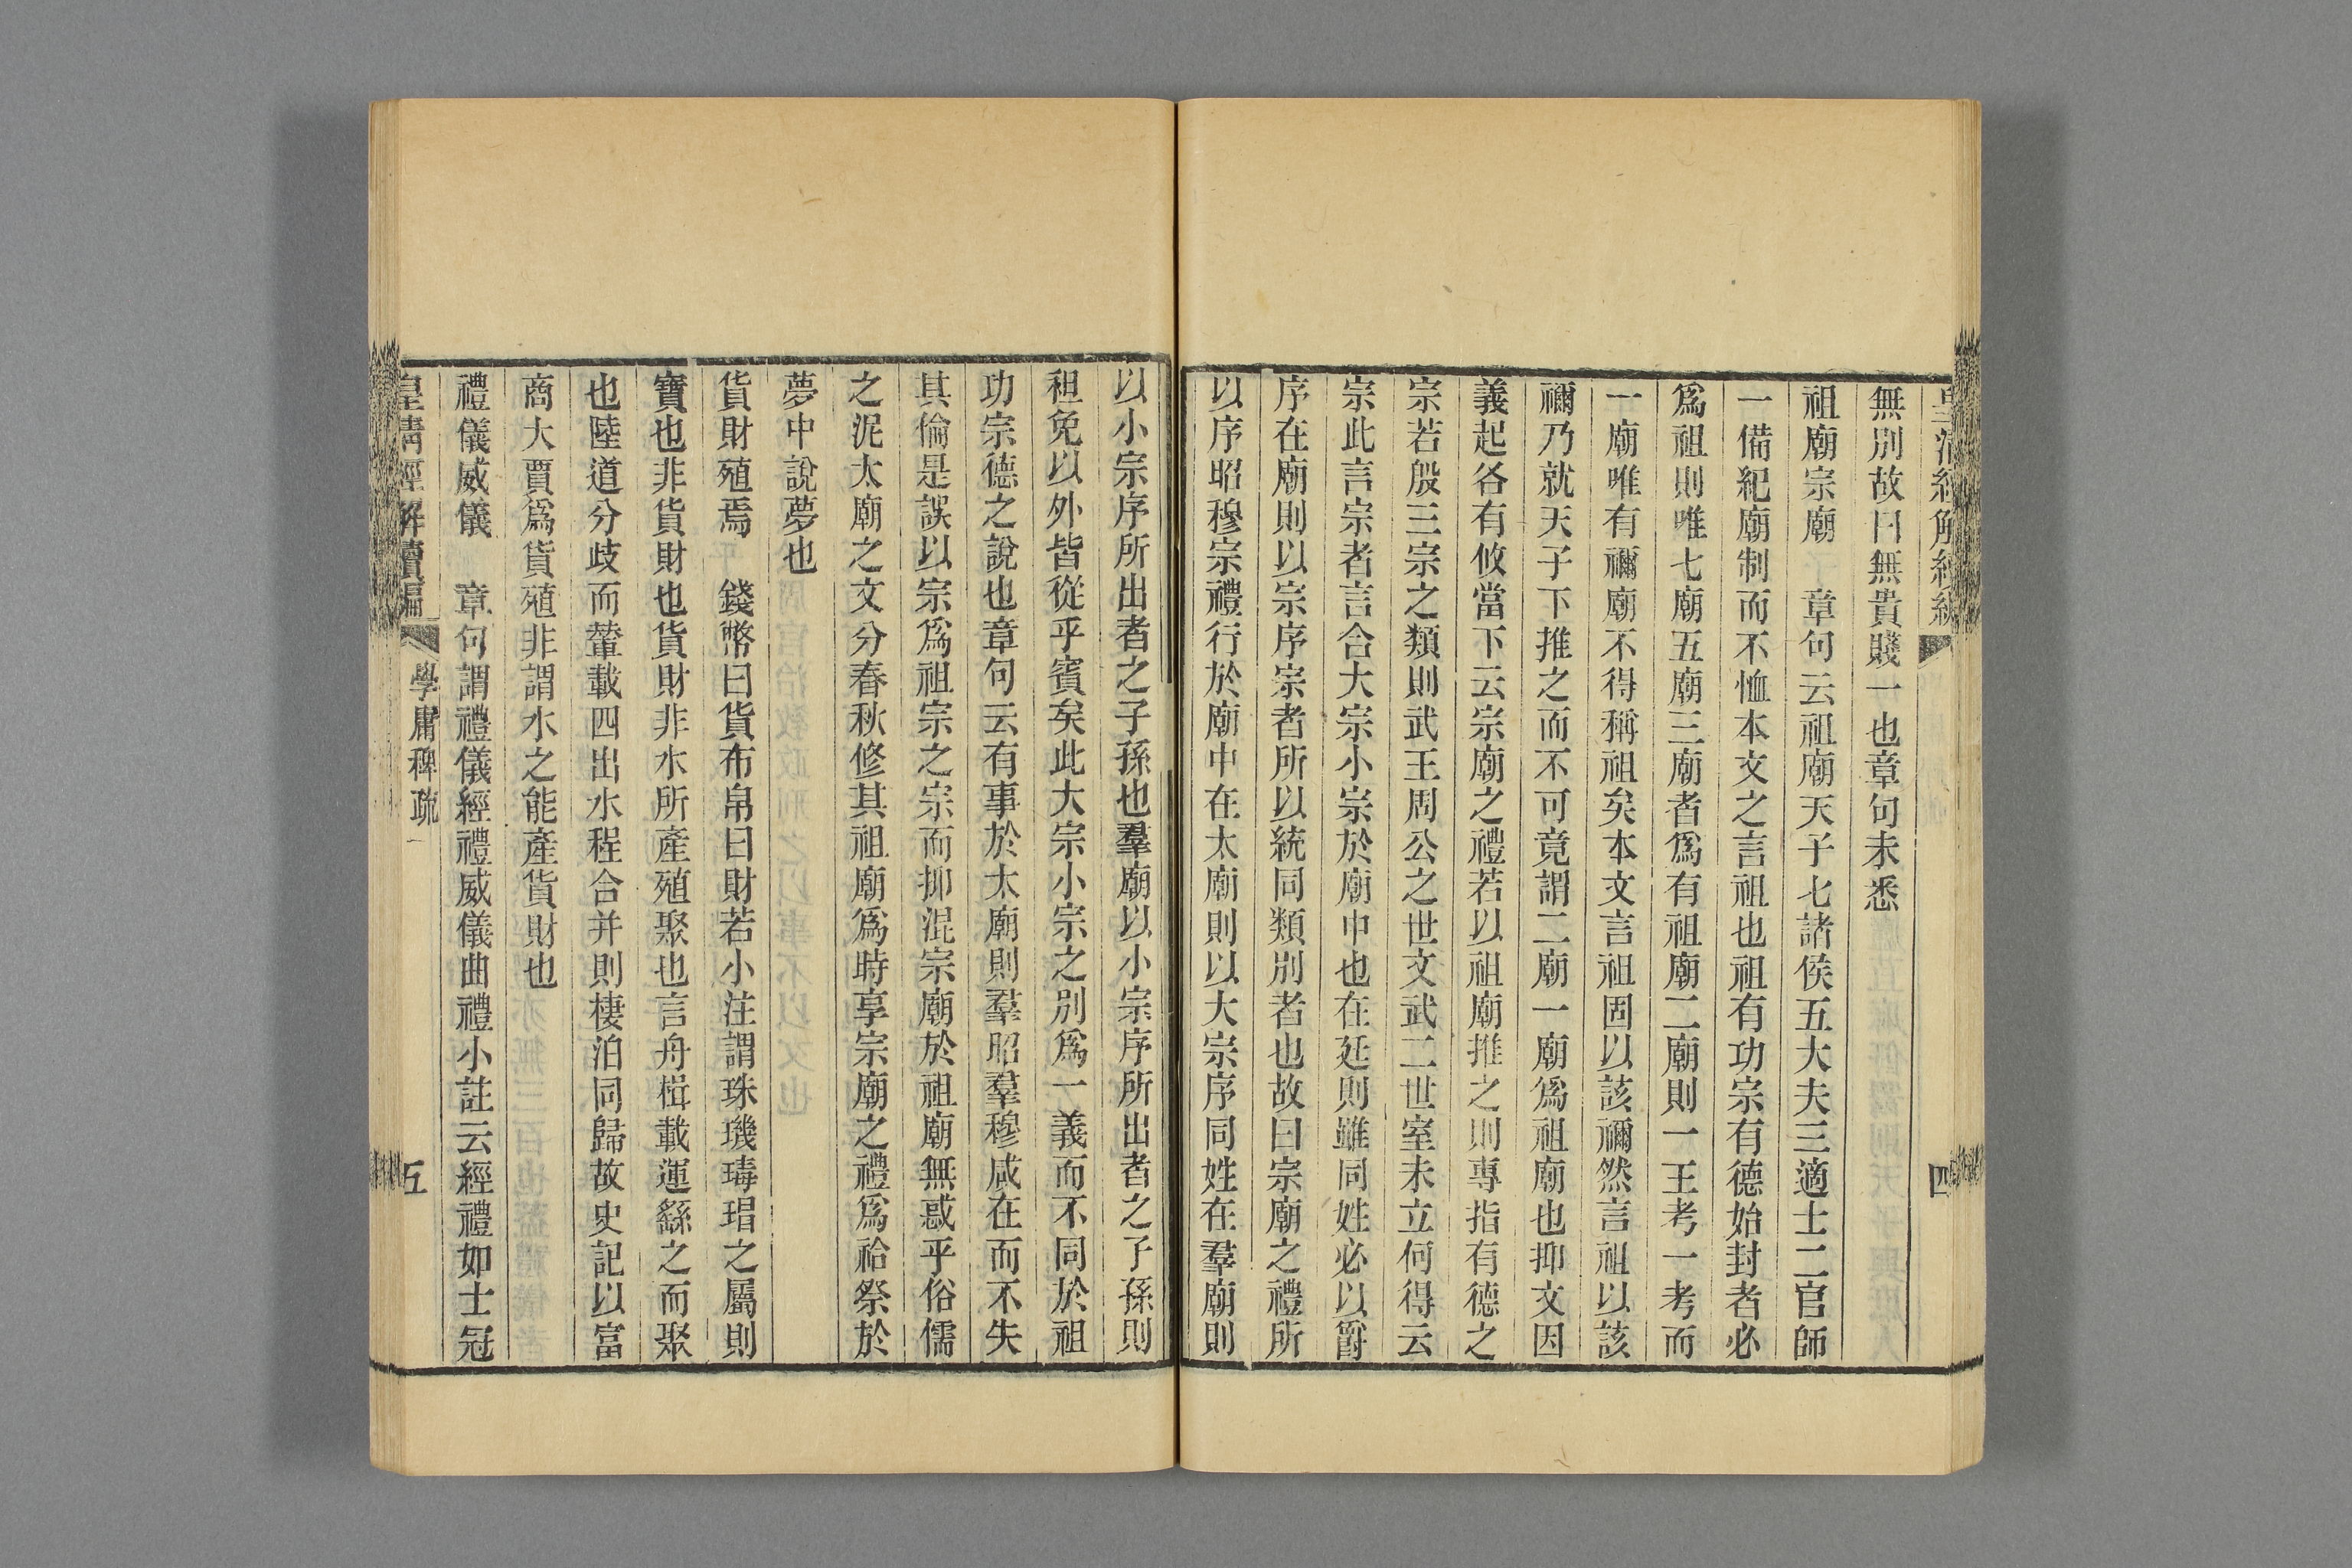 無別故曰無貴賤一也章句未悉
祖廟宗廟　章句云祖廟天子七諸侯五大夫三適士二官師
一備紀廟制而不恤本文之言祖也祖有功宗有德始封者必
爲祖則唯七廟五廟三廟者爲有祖廟二廟則一王考一考而
一廟唯有禰廟不得稱祖矣本文言祖固以該禰然言祖以該
禰乃就天子下推之而不可竟謂二廟一廟爲祖廟也抑文因
義起各有攸當下云宗廟之禮若以祖廟推之則專指有德之
宗若殷三宗之類則武王周公之世文武二世室未立何得云
宗此言宗者言合大宗小宗於廟中也在廷則雖同姓必以爵
序在廟則以宗序宗者所以統同類別者也故曰宗廟之禮所
以序昭穆宗禮行於廟中在太廟則以大宗序同姓在羣廟則
以小宗序所出者之子孫也羣廟以小宗序所出者之子孫則
祖免以外皆從乎賓矣此大宗小宗之別爲一義而不同於祖
功宗德之說也章句云有事於太廟則羣昭羣穆咸在而不失
其倫是誤以宗爲祖宗之宗而抑混宗廟於祖廟無惑乎俗儒
之泥太廟之文分春秋修其祖廟爲時享宗廟之禮爲祫祭於
夢中說夢也
貨財殖焉　錢幣曰貨布帛曰財若小注謂珠璣瑇瑁之屬則
寶也非貨財也貨財非水所產殖聚也言舟楫載運繇之而聚
也陸道分歧而輦載四出水程合并則棲泊同歸故史記以富
商大賈爲貨殖非謂水之能產貨財也
禮儀威儀　章句謂禮儀經禮威儀曲禮小註云經禮如士冠
皇清經解續編
學庸稗疏一
五